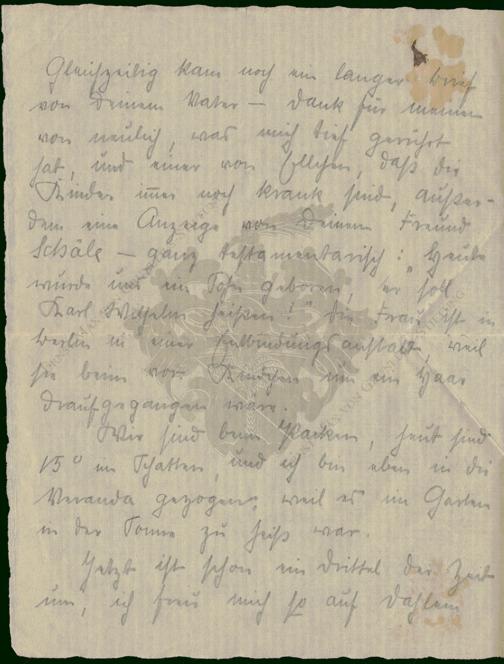 Gleichzeitig kam noch ein langer Brief
von Deinem Vater – Dank für meinen
von neulich, was mich tief gerührt
hat, und einer von Ellchen, daß die
Kinder immer noch krank sind, außer-
dem eine Anzeige von Deinem Freund
Schäle – ganz testamentarisch: „Heute
wurde uns ein Sohn geboren, er soll
Karl Wilhelm heißen!" Die Frau ist in
Berlin in einer Entbindungsanstalt, weil
sie beim vor. Kindchen um ein Haar
draufgegangen wäre.
Wir sind beim Packen, heut sind
15° im Schatten, und ich bin eben in die
Veranda gezogen, weil es im Garten
in der Sonne zu heiß war.
Jetzt ist schon ein Drittel der Zeit
um, ich freu mich so auf Dahlem